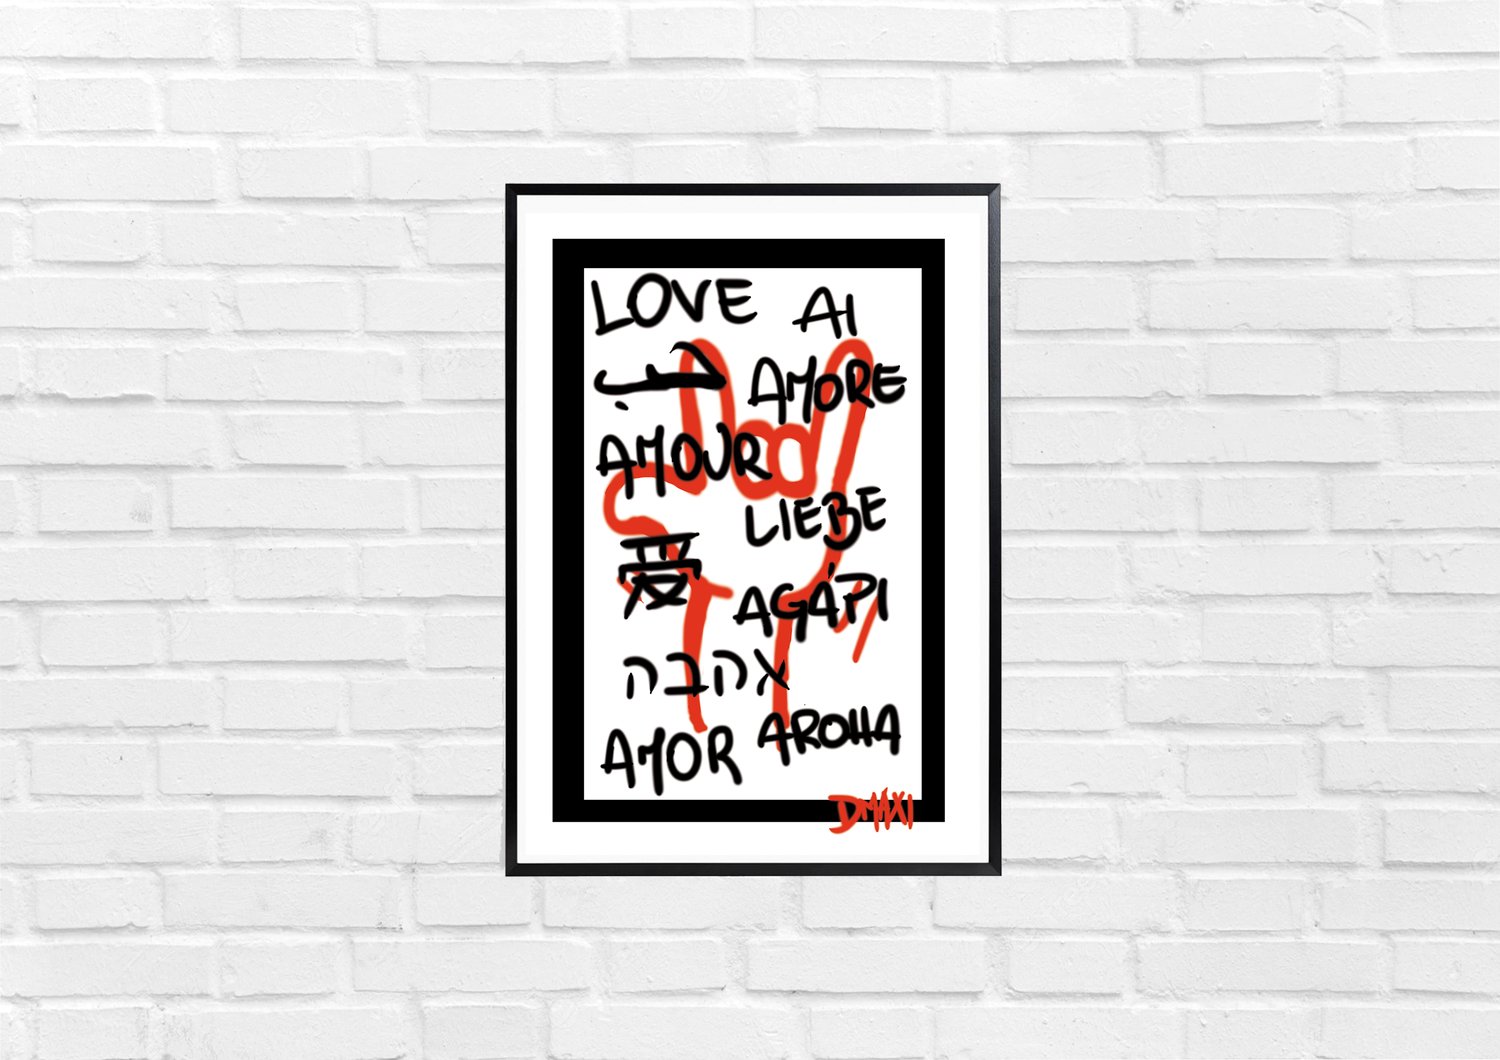 LOVE
AI
حب
AMORE
AMOUR
LIEBE
愛
AGÁPI
אהבה
AROHA
AMOR
DMAXI